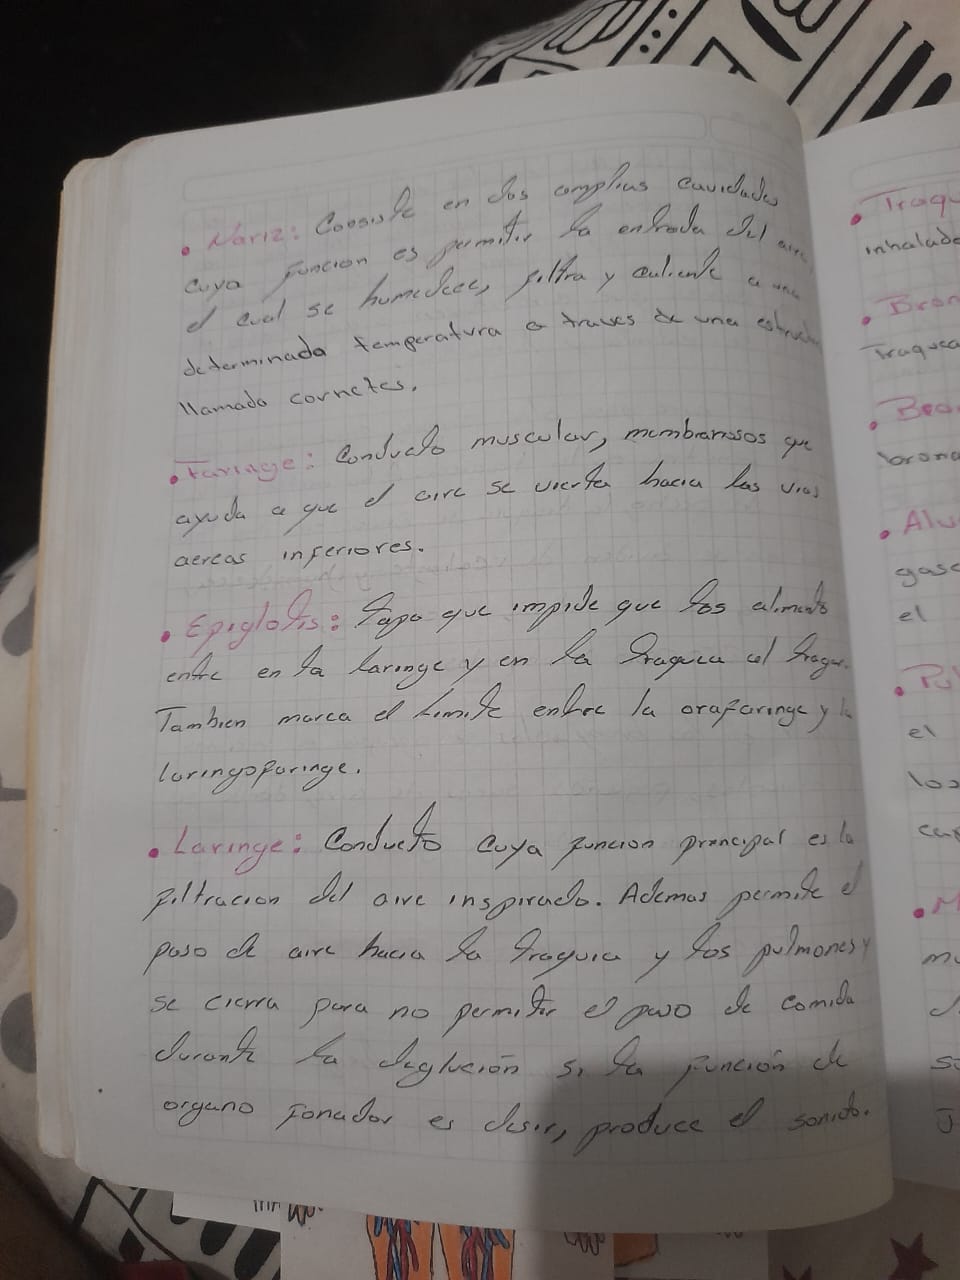 • Nariz: Consiste en dos amplias cavidades
cuya funcion es permitir la entrada del aire,
el cual se humedece, filtra y calienta a una
determinada temperatura a traves de una
llamado cornetes.
• Faringe: Conducto muscular, membranosos que
ayuda a que el aire se vierta hacia las vias
aereas inferiores.
• Epiglotis: tapa que impide que los alimento
entre en la laringe y en la traquea al
Tambien marca el limite entre la orafaringe y la
laringofaringe.
• Laringe: Conducto cuya funcion principal es la
filtracion del aire inspirado. Ademas permite el
paso de aire hacia la traquia y los pulmones y
se cierra para no permitir el paso de comida
durante la deglución si la función de
organo fonador es desir, produce el sonido.
•
inhalado
•
Traquea
•
•
gase
el
•
el
los
•